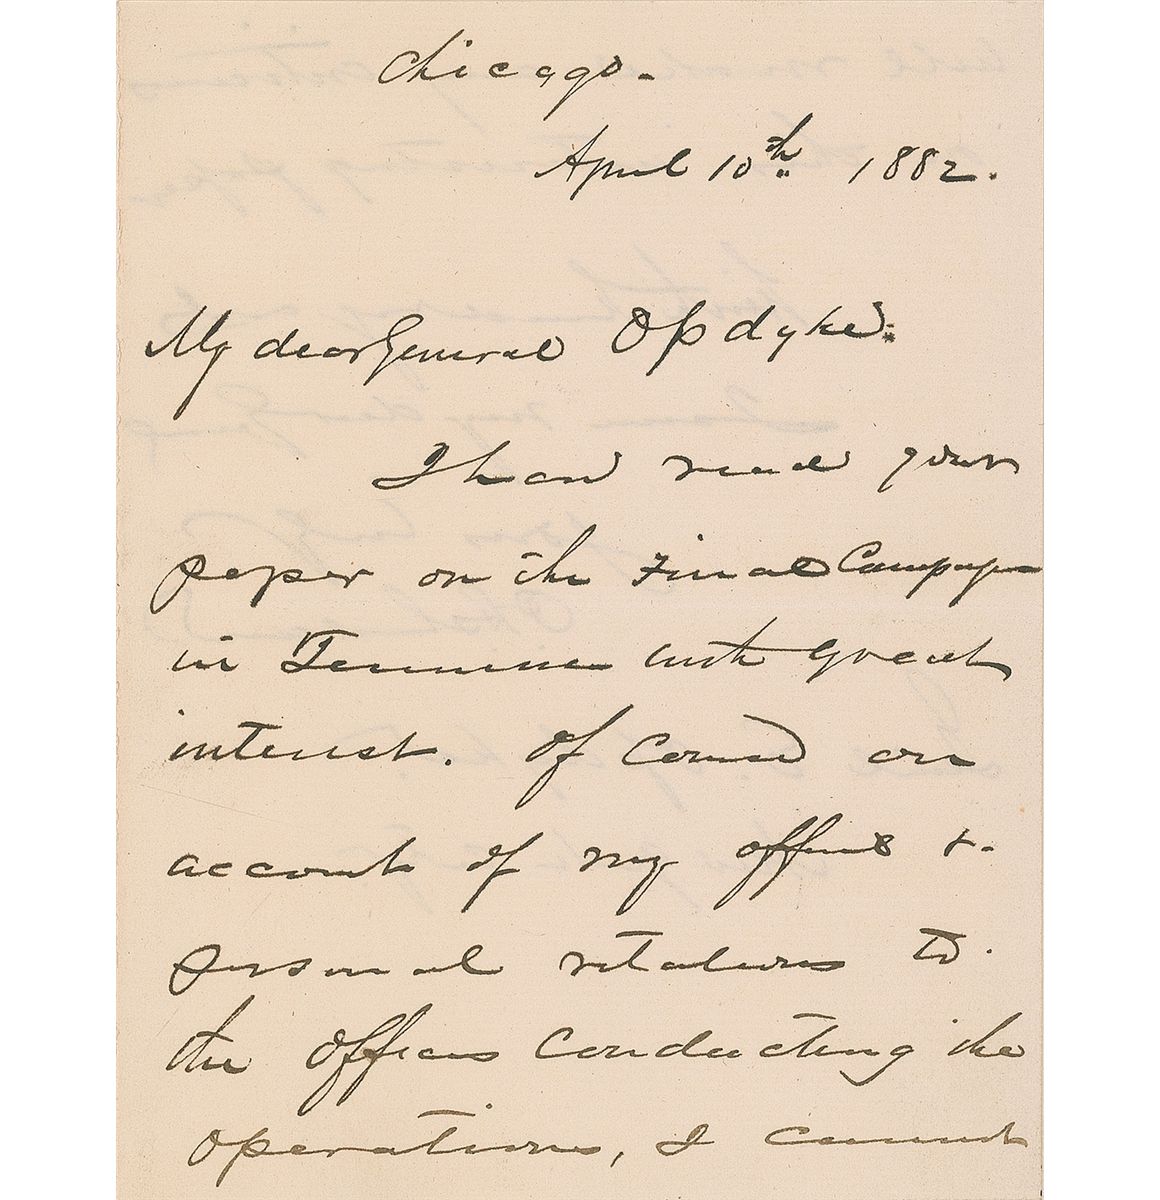 Chicago.
April 10th 1882.
My dear General Opdyke:
I have read your
paper on the Final Campaign
in Tennessee with great
interest. Of course on
account of my office &
personal relations to
the officers conducting the
operations, I cannot